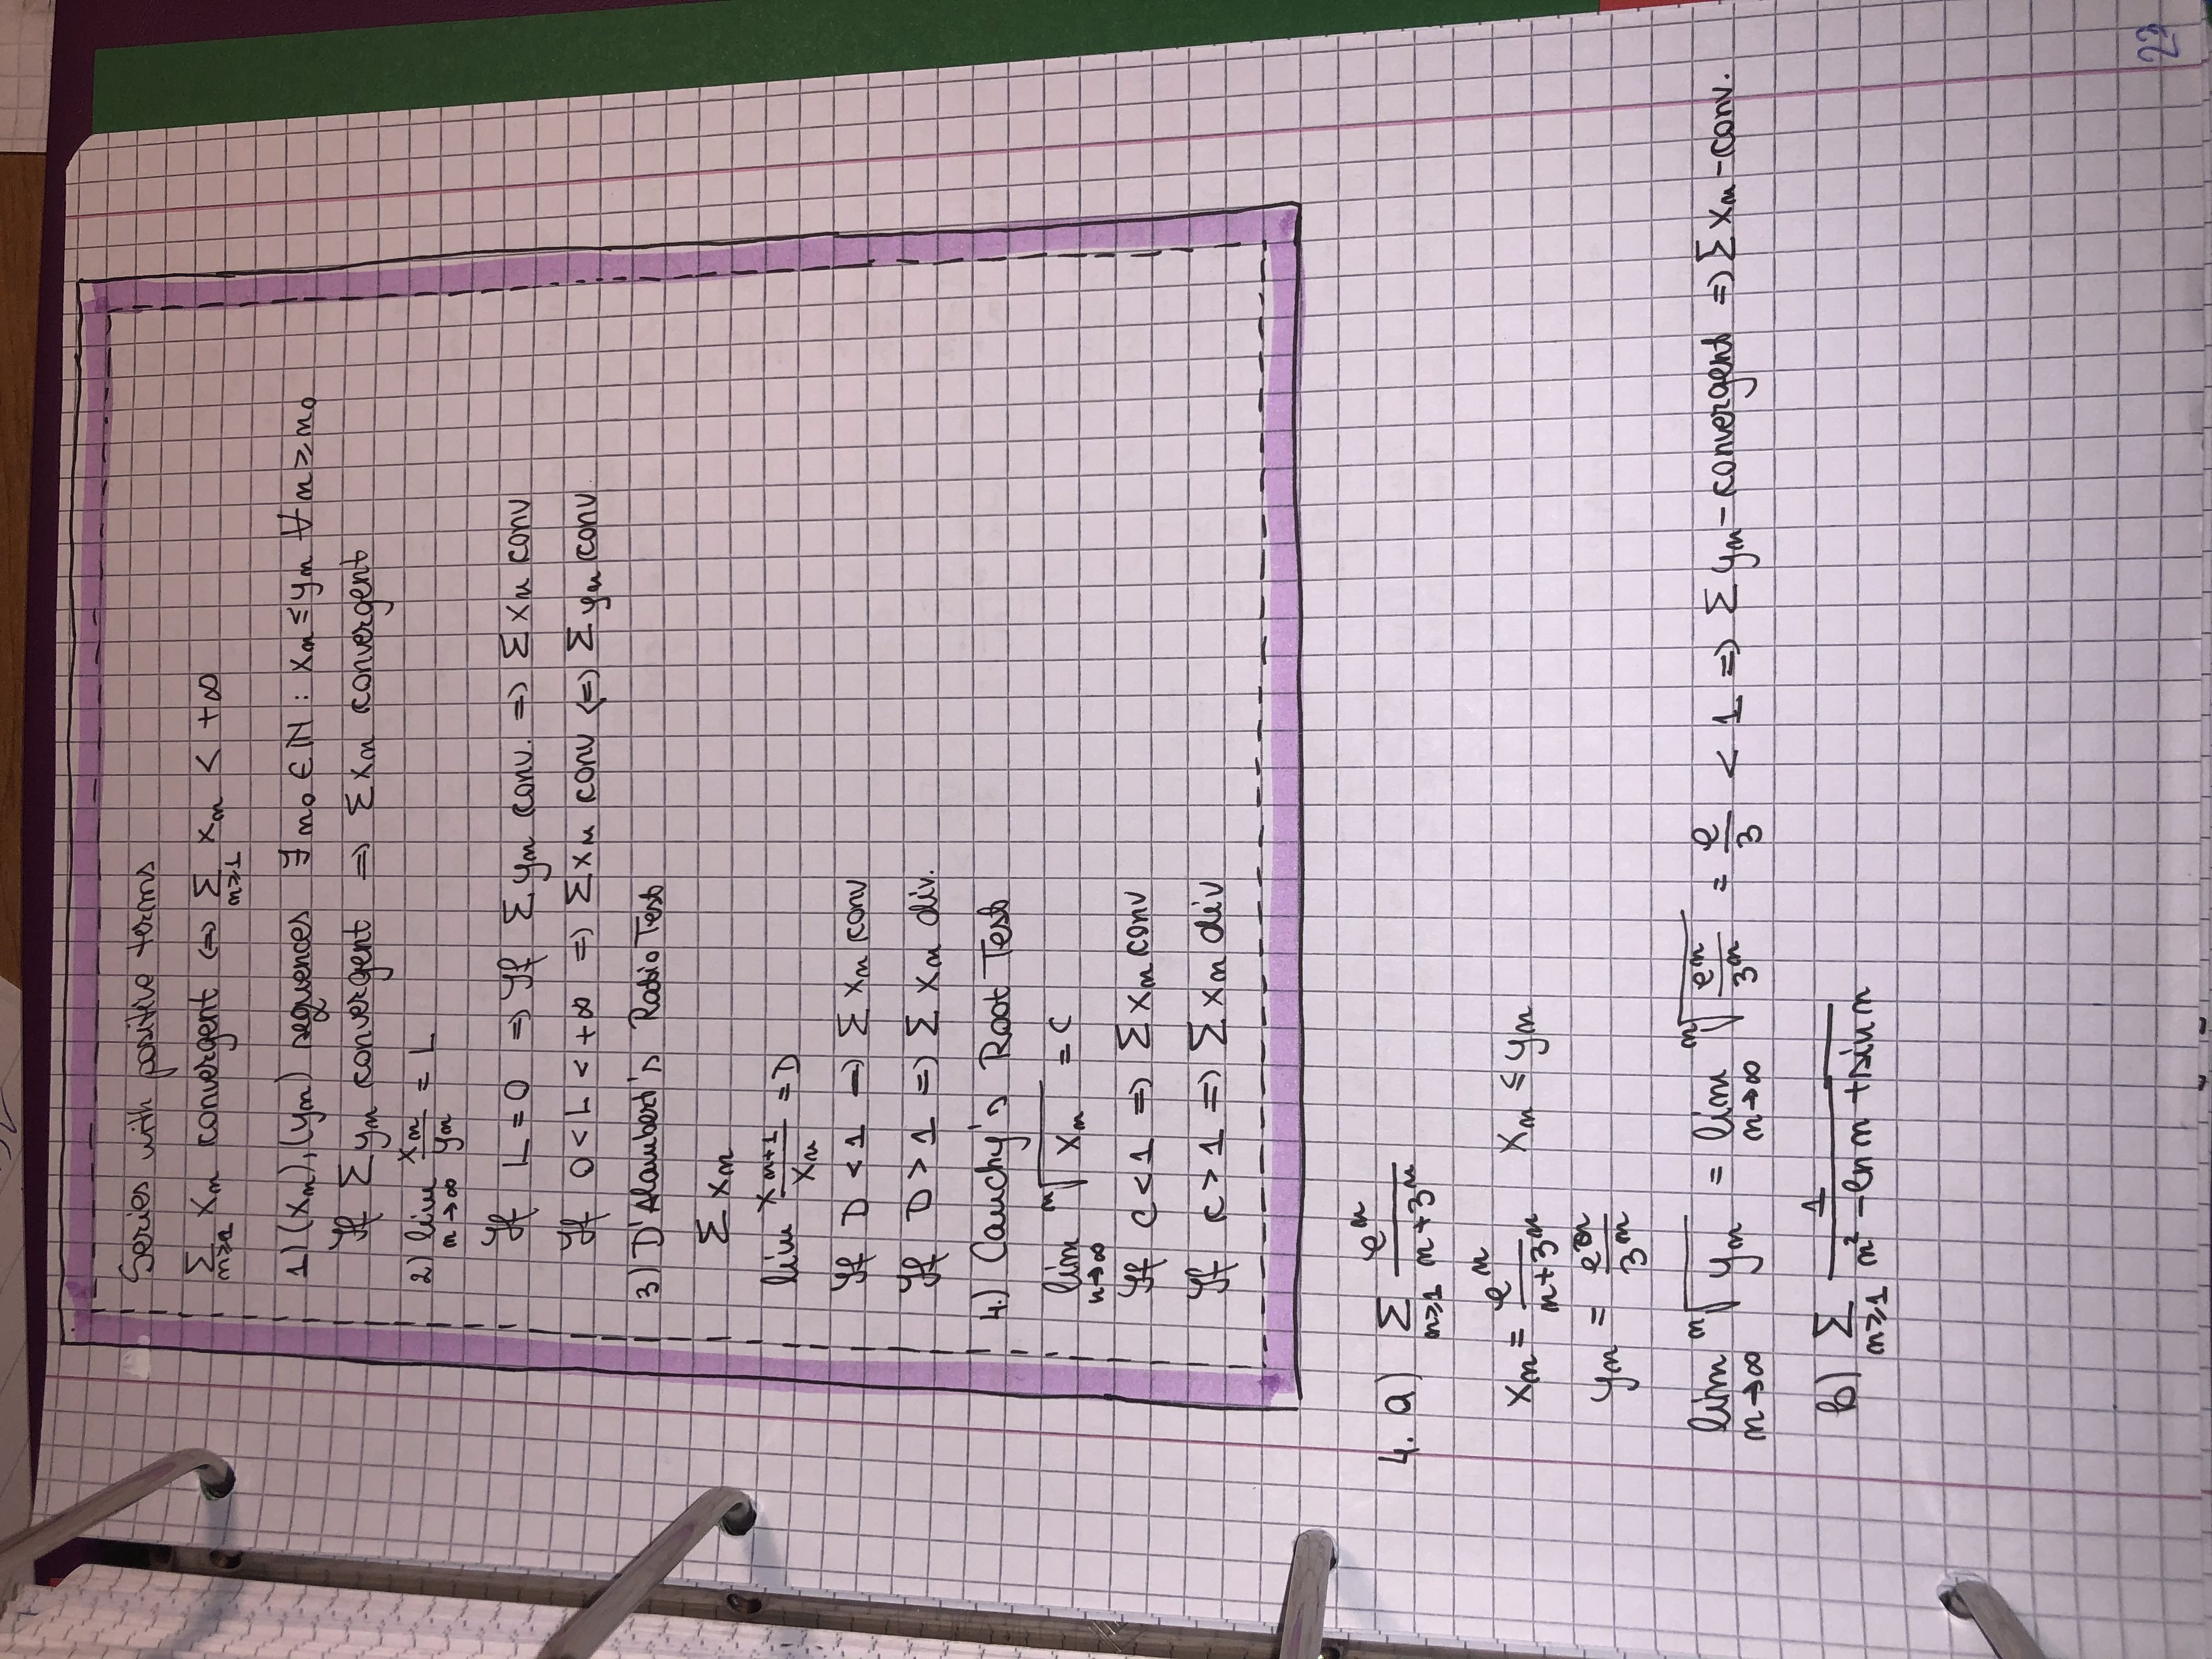 Series with positive terms
∑ₙ≥₁ xₙ convergent ⇔ ∑ₙ≥₁ xₙ < +∞
1) (xₙ), (yₙ) sequences ∃ n₀ ∈ ℕ : xₙ ≤ yₙ ∀ n ≥ n₀
If ∑ yₙ convergent ⇒ ∑ xₙ convergent
2) lim n→∞ xₙ/yₙ = L
If L = 0 ⇒ If ∑ yₙ conv. ⇒ ∑ xₙ conv
If 0 < L < +∞ ⇒ ∑ xₙ conv ⇔ ∑ yₙ conv.
3) D'Alambert's Ratio Test
∑ xₙ
lim xₙ₊₁/xₙ = D
If D < 1 → ∑ xₙ conv
If D > 1 ⇒ ∑ xₙ div.
4.) Cauchy's Root Test
lim n→∞ ⁿ√xₙ = C
If C < 1 ⇒ ∑ xₙ conv
If C > 1 ⇒ ∑ xₙ div
4. a) ∑ₙ≥₁ eⁿ/(n+3ⁿ)
xₙ = eⁿ/(n+3ⁿ) xₙ ≤ yₙ
yₙ = eⁿ/3ⁿ
lim n→∞ ⁿ√yₙ = lim n→∞ ⁿ√(eⁿ/3ⁿ) = e/3 < 1 ⇒ ∑ yₙ - convergent ⇒ ∑ xₙ - conv.
b) ∑ₙ≥₁ 1/(n² - ln n + sin n)
23